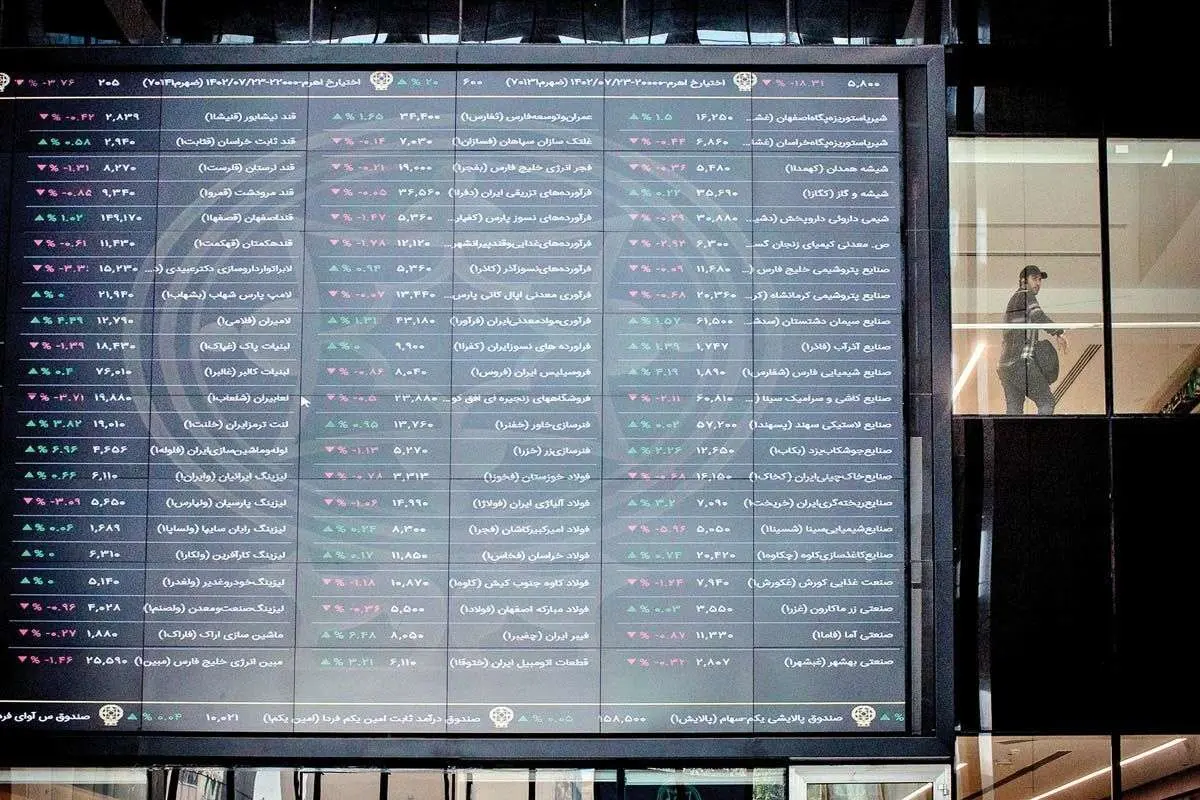 ۵,۸۰۰ % -۱۸.۳۱ اختیارخ اهرم-۲۰۰۰۰-۱۴۰۲/۰۷/۲۳ (ضهرم۷۰۱۳۱) ۶۰۰ % ۲۰ اختیارخ اهرم-۲۲۰۰۰-۱۴۰۲/۰۷/۲۳ (ضهرم۷۰۱۴۱) ۲۰۵ % -۳.۷۶
شیرپاستوریزه‌پگاه‌اصفهان (غش... ۱۶,۲۵۰ % ۱.۵ عمران‌وتوسعه‌فارس (ثفارس۱) ۳۴,۴۰۰ % ۱.۶۵ قند نیشابور (قنیشا۱) ۲,۸۳۹ % -۰.۴۲
شیرپاستوریزه‌پگاه‌خراسان (غشا... ۶,۸۶۰ % -۰.۴۴ غلتک سازان سپاهان (فسازان۱) ۷,۰۳۰ % -۰.۱۴ قند ثابت خراسان (قثابت۱) ۲,۹۴۰ % ۰.۵۸
شیشه همدان (کهمدا۱) ۵,۴۸۰ % -۰.۳۶ فجر انرژی خلیج فارس (بفجر۱) ۱۹,۰۰۰ % -۰.۲۱ قند لرستان (قلرست۱) ۸,۲۷۰ % -۱.۳۱
شیشه و گاز (کگاز۱) ۳۵,۶۹۰ % ۰.۲۲ فرآورده‌های تزریقی ایران (دفرا۱) ۳۶,۵۶۰ % -۰.۰۵ قند مرودشت (قمرو۱) ۹,۳۴۰ % -۰.۸۵
شیمی داروئی داروپخش (دشی... ۳۰,۸۸۰ % -۰.۲۹ فرآورده‌های نسوز پارس (کفپار... ۵,۳۶۰ % -۱.۴۷ قنداصفهان (قصفها۱) ۱۴۹,۱۷۰ % ۱.۰۲
ص. معدنی کیمیای زنجان گس... ۶,۳۰۰ % -۲.۹۲ فرآورده‌های‌غذایی‌وقندپیرانشهر... ۱۲,۱۲۰ % -۱.۷۸ قندهکمتان (قهکمت۱) ۱۱,۴۳۰ % -۰.۶۱
صنایع پتروشیمی خلیج فارس (... ۱۱,۶۸۰ % -۰.۰۹ فرآورده‌های‌نسوزآذر (کاذر۱) ۵,۳۶۰ % ۰.۹۴ لابراتوارداروسازی دکترعبیدی (د... ۱۵,۲۳۰
صنایع پتروشیمی کرمانشاه (کر... ۲۰,۳۶۰ % -۰.۶۸ فرآوری معدنی اپال کانی پارس... ۱۳,۴۴۰ % -۰.۰۷ لامپ پارس شهاب (بشهاب۱) ۲۱,۹۴۰ % ۰
صنایع سیمان دشتستان (سدش... ۶۱,۵۰۰ % ۱.۵۷ فرآوری‌موادمعدنی‌ایران (فرآور۱) ۴۳,۱۸۰ % ۱.۳۱ لامیران (فلامی۱) ۱۲,۷۹۰ % ۴.۴۹
صنایع آذرآب (فاذر۱) ۱,۷۴۷ % ۱.۳۹ فراورده های نسوزایران (کفرا۱) ۹,۹۰۰ % ۰ لبنیات پاک (غپاک۱) ۱۸,۴۳۰ % -۱.۳۹
صنایع شیمیایی فارس (شفارس۱) ۱,۸۹۰ % ۴.۱۹ فروسیلیس ایران (فروس۱) ۸,۰۴۰ % -۰.۸۶ لبنیات کالبر (غالبر۱) ۷۶,۰۱۰ % ۰.۴
صنایع کاشی و سرامیک سینا (... ۶۰,۸۱۰ % -۲.۱۱ فروشگاههای زنجیره ای افق کو... ۲۳,۸۸۰ % -۰.۵ لعابیران (شلعاب۱) ۱۹,۸۸۰ % -۳.۷۱
صنایع لاستیکی سهند (پسهند۱) ۵۷,۲۰۰ % ۰.۰۲ فنرسازی‌خاور (خفنر۱) ۱۳,۷۶۰ % ۰.۹۵ لنت ترمزایران (خلنت۱) ۱۹,۰۱۰ % ۳.۸۲
صنایع‌جوشکاب‌یزد (بکاب۱) ۱۲,۶۵۰ % ۲.۲۶ فنرسازی‌زر (خزر۱) ۵,۲۷۰ % -۱.۱۳ لوله‌وماشین‌سازی‌ایران (فلوله۱) ۴,۶۵۶ % ۶.۹۶
صنایع‌خاک‌چینی‌ایران (کخاک۱) ۱۶,۱۵۰ % -۰.۶۸ فولاد خوزستان (فخوز۱) ۳,۳۱۳ % -۰.۷۸ لیزینگ ایرانیان (وایران۱) ۶,۱۱۰ % ۰.۶۶
صنایع‌ریخته‌گری‌ایران (خریخت۱) ۷,۰۹۰ % ۳.۲ فولاد آلیاژی ایران (فولاژ۱) ۱۴,۹۹۰ % -۱.۰۶ لیزینگ پارسیان (ولپارس۱) ۵,۶۵۰ % -۳.۰۹
صنایع‌شیمیایی‌سینا (شسینا۱) ۵,۰۵۰ % -۵.۹۶ فولاد امیرکبیرکاشان (فجر۱) ۸,۳۰۰ % ۰.۲۴ لیزینگ رایان سایپا (ولساپا۱) ۱,۶۸۹ % ۰.۰۶
صنایع‌کاغذسازی‌کاوه (چکاوه۱) ۲۰,۴۲۰ % ۰.۷۴ فولاد خراسان (فخاس۱) ۱۱,۸۵۰ % ۰.۱۷ لیزینگ کارآفرین (ولکار۱) ۶,۳۱۰ % ۰
صنعت غذایی کورش (غکورش۱) ۷,۹۴۰ % -۱.۲۴ فولاد کاوه جنوب کیش (کاوه۱) ۱۰,۸۷۰ % -۱.۱۸ لیزینگ‌خودروغدیر (ولغدر۱) ۵,۱۴۰ % ۰
صنعتی زر ماکارون (غزر۱) ۳,۵۵۰ % ۰.۰۳ فولاد مبارکه اصفهان (فولاد۱) ۵,۵۰۰ % -۰.۳۶ لیزینگ‌صنعت‌ومعدن (ولصنم۱) ۴,۰۲۸ % -۰.۹۶
صنعتی آما (فاما۱) ۱۱,۳۳۰ % -۰.۸۷ فیبر ایران (چفیبر۱) ۸,۰۵۰ % ۶.۴۸ ماشین سازی اراک (فاراک۱) ۱,۸۸۰ % -۰.۲۷
صنعتی بهشهر (غبشهر۱) ۲,۸۰۷ % -۰.۳۲ قطعات اتومبیل ایران (ختوقا۱) ۶,۱۱۰ % ۳.۲۱ مبین انرژی خلیج فارس (مبین۱) ۲۵,۵۹۰ % -۱.۴۶
% صندوق پالایشی یکم-سهام (پالایش۱) ۱۵۸,۵۰۰ % ۰.۰۵ صندوق درآمد ثابت امین یکم فردا (امین یکم۱) ۱۰,۰۲۱ % ۰.۰۴ صندوق س آوای